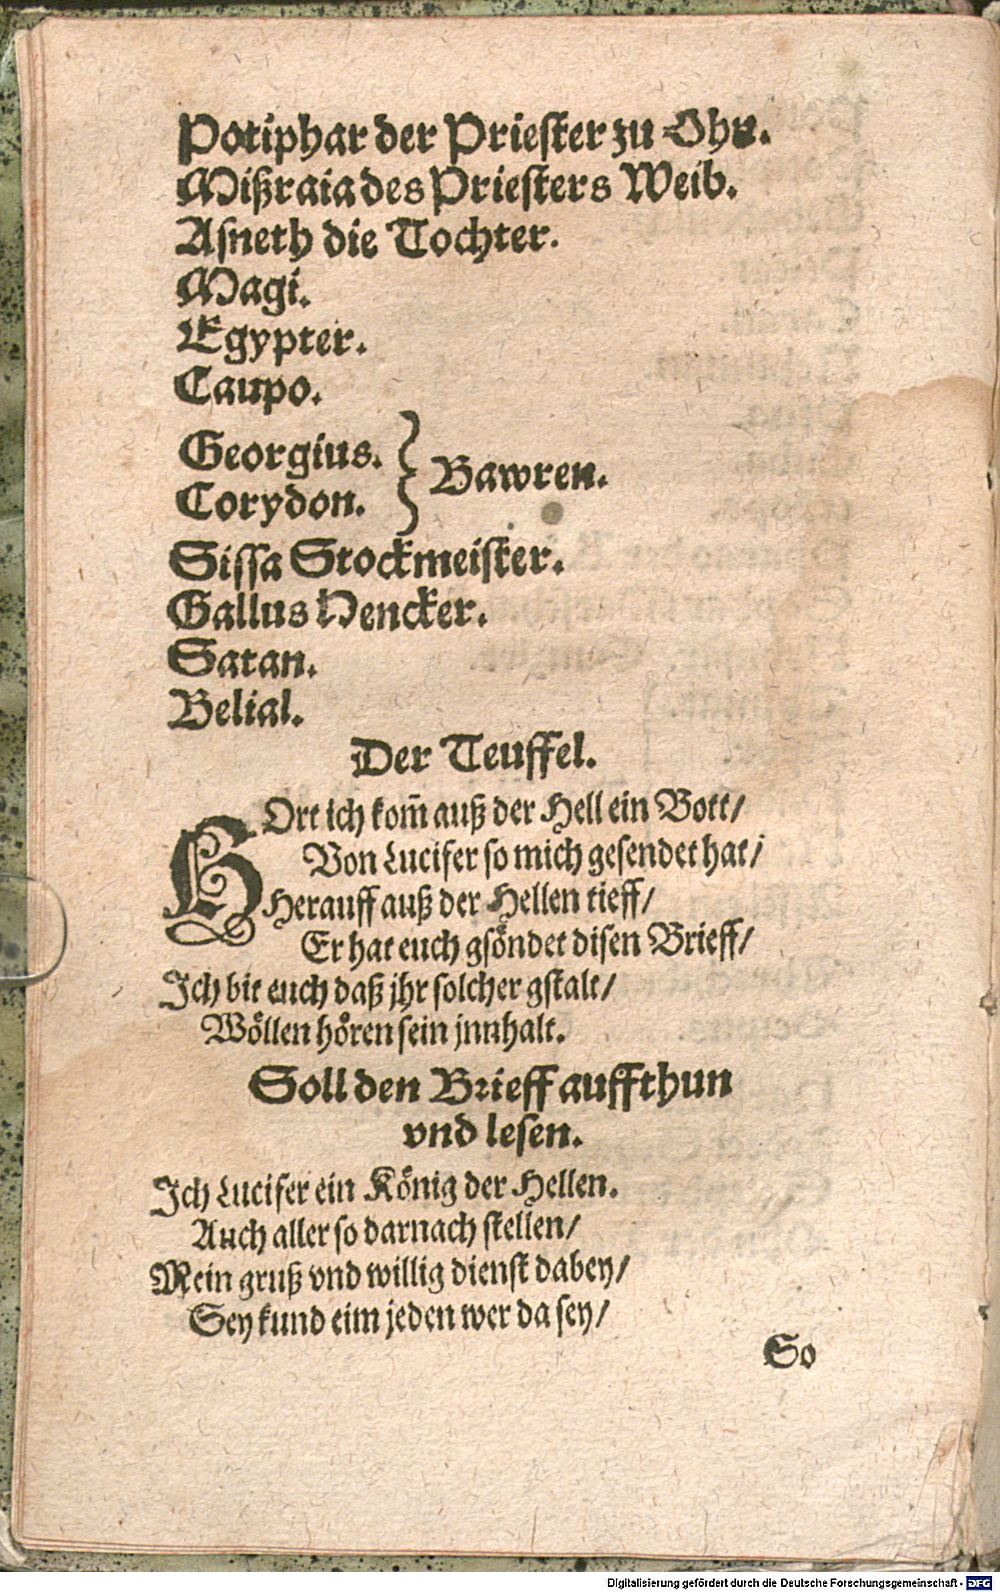 Potiphar der Priester zu Ohn.
Mißraia des Priesters Weib.
Asneth die Tochter.
Magi.
Egypter.
Caupo.
Georgius.
Corydon.
} Bawren.
Sissa Stockmeister.
Gallus Hencker.
Satan.
Belial.
Der Teuffel.
HOrt ich kom̄ auß der Hell ein Bott/
Von Lucifer so mich gesendet hat/
Herauff auß der Hellen tieff/
Er hat euch gsöndet disen Brieff/
Ich bit euch daß jhr solcher gstalt/
Wöllen hören sein jnnhalt.
Soll den Brieff auffthun
vnd lesen.
Ich Lucifer ein König der Hellen.
Auch aller so darnach stellen/
Mein gruß vnd willig dienst dabey/
Sey kund eim jeden wer da sey/
So
Digitalisierung gefördert durch die Deutsche Forschungsgemeinschaft - DFG